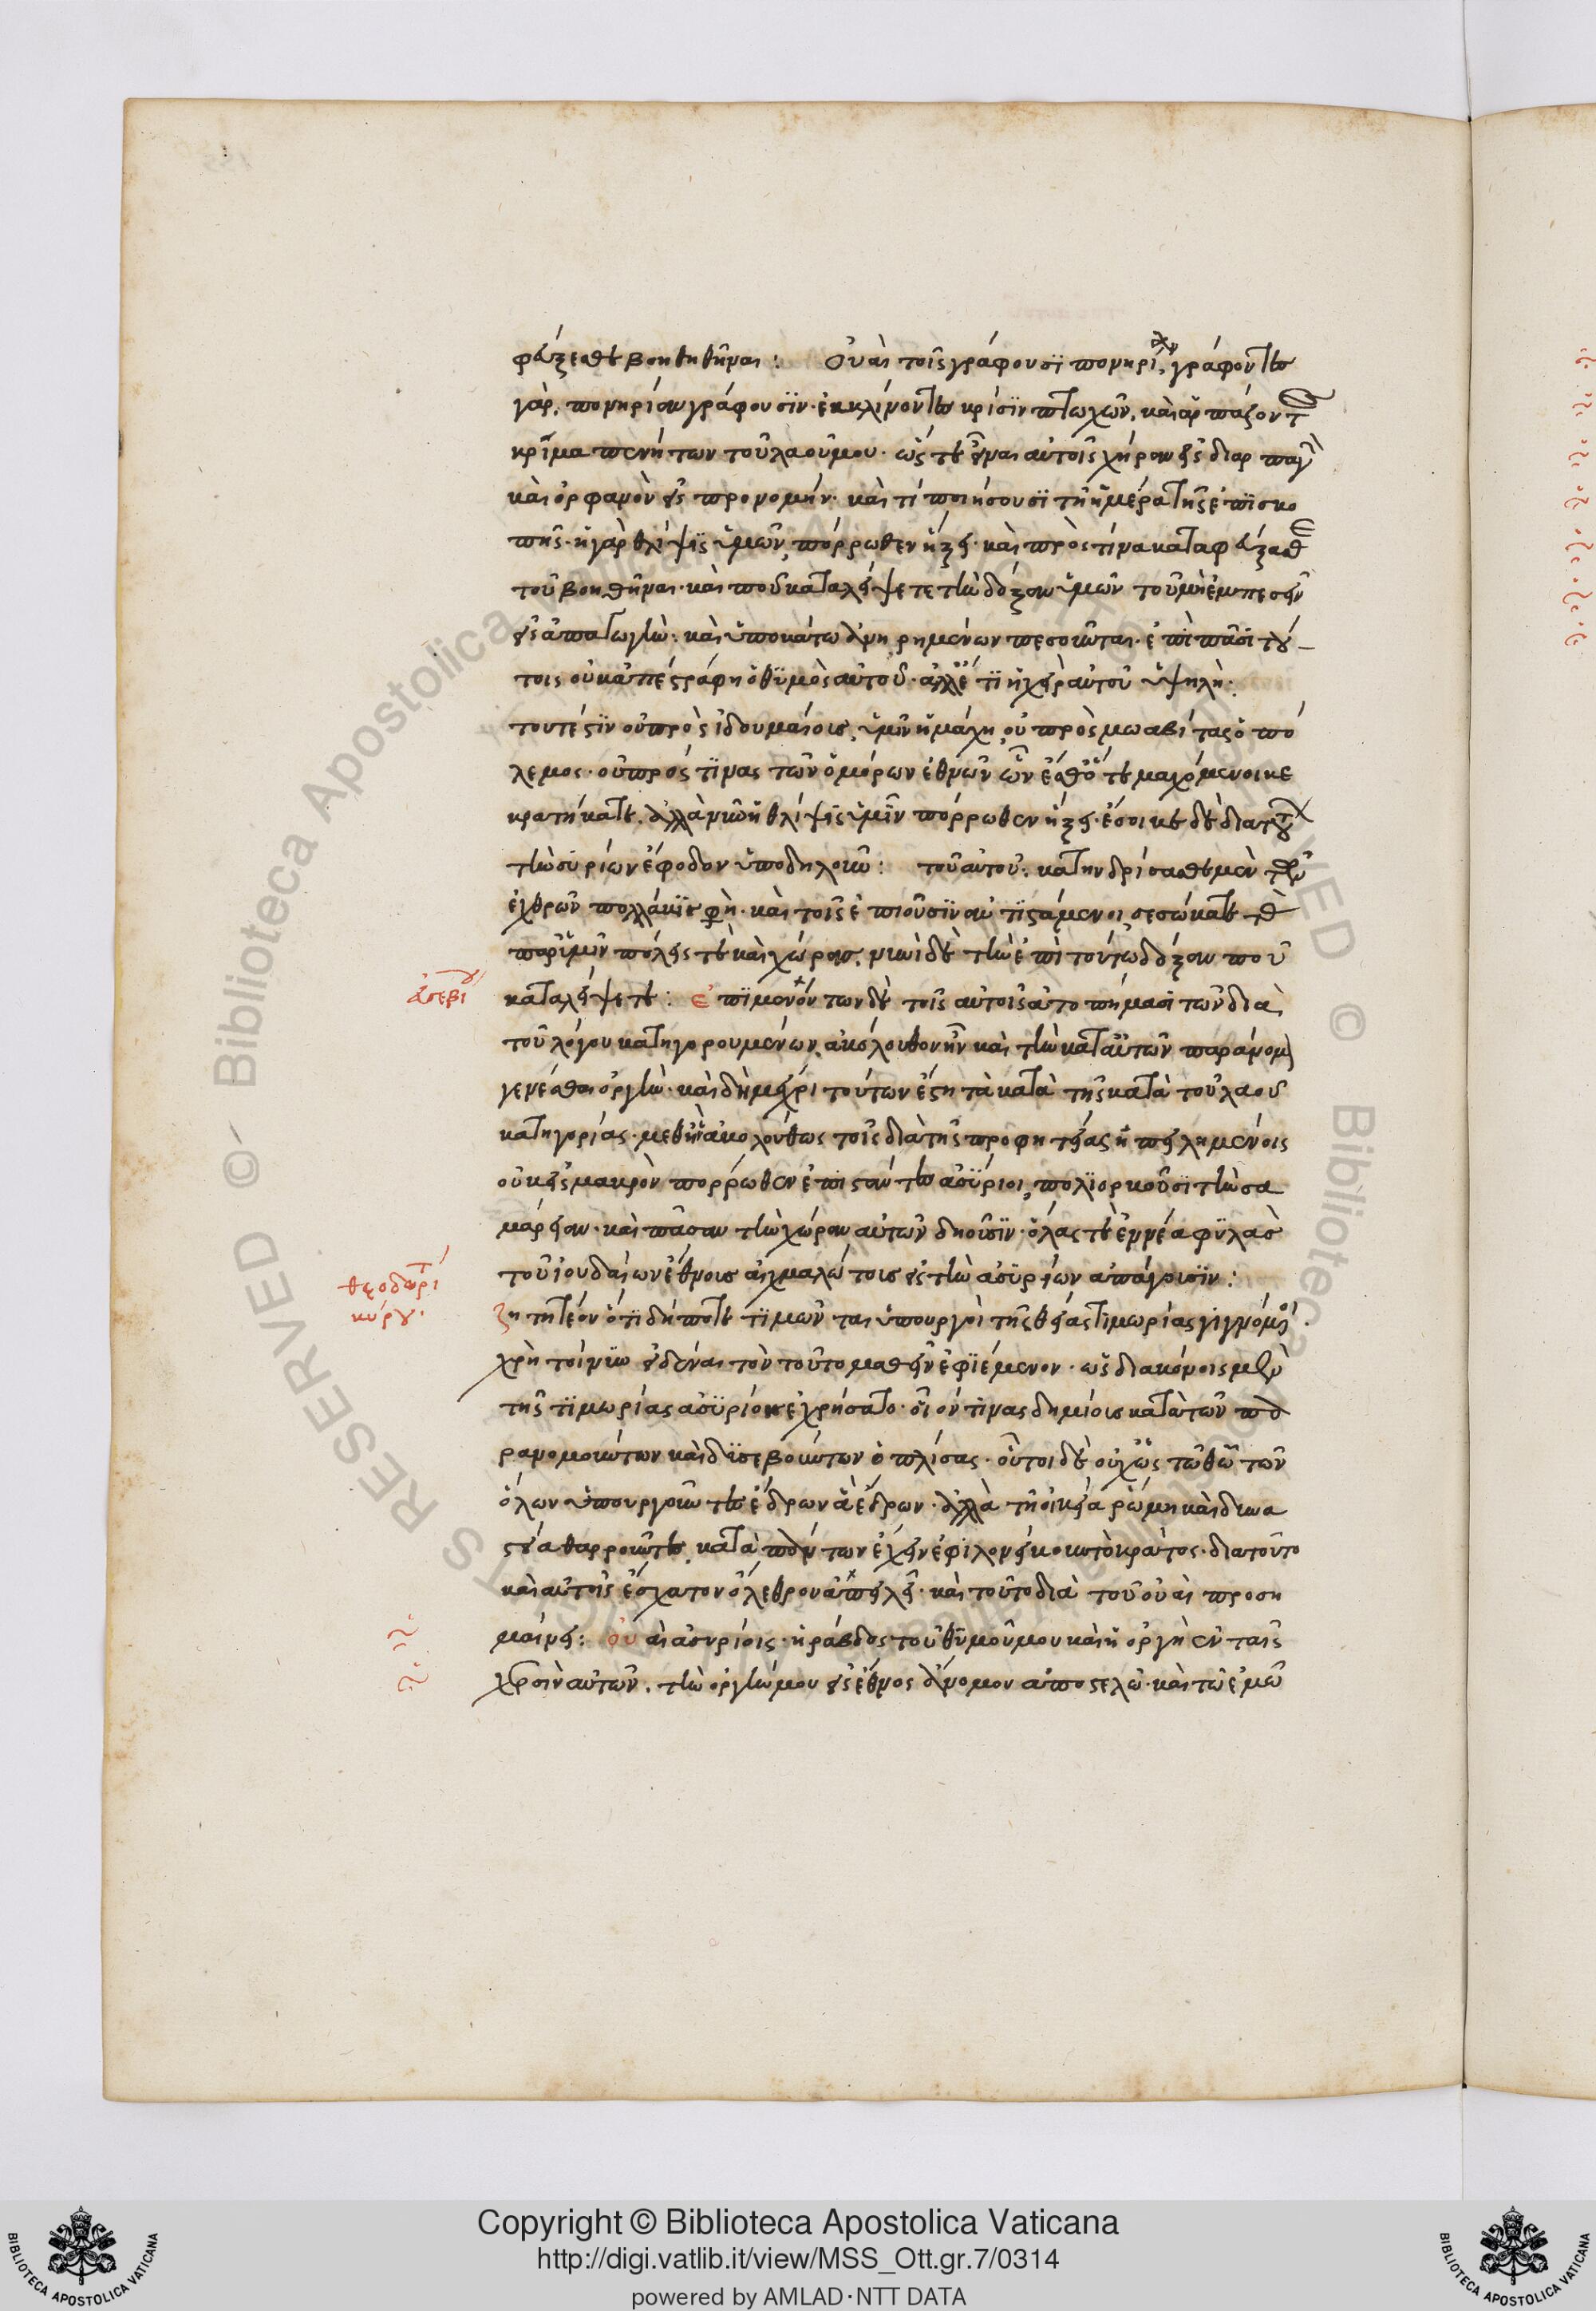 φεύξεσθε βοηθηθῆναι : Οὐαὶ τοῖς γράφουσϊ πονηρί, γράφοντες
γὰρ, πονηρίαν γράφουσϊν· ἐκκλίνοντες κρίσϊν πτωχῶν, καὶ ἁρπάζοντες
κρῖμα πενήτων τοῦ λαοῦ μου· ὥστε εἶναι αὐτοῖς χήραν εἰς διαρπαγὴν
καὶ ὀρφανὸν εἰς προνομήν· καὶ τί ποιήσουσϊ τῇ ἡμέρα τῆς ἐπϊσκο
πῆς· ἡ γὰρ θλίψϊς ὑμῶν πόρρωθεν ἥξει· καὶ πρὸς τίνα καταφεύξεσθε
τοῦ βοηθῆναι· καὶ ποῦ καταλείψετε τὴν δόξαν ὑμῶν τοῦ μὴ ἐμπεσεῖν
εἰς ἀπαγωγὴν· καὶ ὑποκάτω ἀνῃρημένων πεσοῦνται· ἐπὶ πᾶσϊ τού
τοις οὐκ ἀπεστράφη ὁ θϋμὸς αὐτοῦ· ἀλλ' ἔτϊ ἡ χεὶρ αὐτοῦ ὑψηλὴ·
τουτέστϊν οὐ πρὸς ἰδουμαίους ὑμῖν ἡ μάχη, οὐ πρὸς μωαβίτας ὁ πό
λεμος· οὐ πρός τϊνας τῶν ὁμόρων ἐθνῶν ὧν εἰώθοτε μαχόμενοι κε
κρατήκατε. ἀλλὰ νῦν ἡ θλίψϊς ὑμῖν πόρρωθεν ἥξει· ἔοικε δὲ διὰ τούτων
τὴν σϋρίων ἔφοδον ὑποδηλοῦν : τοῦ αὐτοῦ. κατηνδρίσασθε μὲν τῶν
ἐχθρῶν πολλάκϊς φησὶ· καὶ τοῖς ἐπιοῦσϊν ἀντϊστάμενοι σεσώκατε τὰς
παρ' ὑμῖν πόλεις τὲ καὶ χώρας. νυνὶ δὲ τὴν ἐπὶ τούτω δόξαν ποῦ
εὐσεβίου
καταλείψετε : ἐπϊμενόντων δὲ τοῖς αὐτοῖς ἀτοπήμασϊ τῶν διὰ
τοῦ λόγου κατηγορουμένων, ἀκόλουθον ἦν καὶ τὴν κατ' αὐτῶν παράνομον
γενέσθαι ὀργὴν· καὶ δὴ μέχρι τούτων ἔστη τὰ κατὰ τῆς κατὰ τοῦ λαοῦ
κατηγορίας· μεθ' ἣν ἀκολούθως τοῖς διὰ τῆς προφητείας ἠπειλημένοις
οὐκ εἰς μακρὸν πορρώθεν ἐπϊστάντες ἀσϋριοι, πολϊορκοῦσϊ τὴν σα
μάρειαν· καὶ πᾶσαν τὴν χώραν αὐτῶν δηοῦσϊν· ὅλας τὲ ἐννέα φϋλὰς
τοῦ ἰουδαίων ἔθνους αἰχμαλώτους εἰς τὴν ἀσϋρίων ἀπάγουσϊν :
θεοδωρίτ
κύρου·
ζητητέον ὅτϊ δήποτε τϊμῶνται ὑπουργοὶ τῆς θείας τϊμωρίας γϊγνόμενοι·
χρὴ τοίνϋν εἰδέναι τὸν τοῦτο μαθεῖν ἐφϊέμενον· ὡς διακόνοις μὲν
τῆς τϊμωρίας ἀσϋρίοις ἐχρήσατο· οἷόν τϊνας δημίους κατὰ τῶν πα
ρανομούντων καὶ δϋσεβούντων ὁπλίσας· οὗτοι δὲ οὐχ ὡς τῶ θεῶ τῶν
ὅλων ὑπουργοῦντες ἔδρων ἃ ἔδρων· ἀλλὰ τῇ οἰκεία ῥώμη καὶ δυνα
στεία θαρροῦντες, κατὰ πάντων ἔχειν ἐφϊλονείκουν τὸ κράτος· διὰ τοῦτο
καὶ αὐτοῖς ἔσχατον ὄλεθρον ἀπειλεῖ· καὶ τοῦτο διὰ τοῦ οὐαὶ προση
μαίνει : οὐαὶ ἀσυρίοις· ἡ ράβδος τοῦ θϋμοῦ μου καὶ ἡ ὀργὴ ἐν ταῖς
χερσὶν αὐτῶν. τὴν ὀργήν μου εἰς ἔθνος ἄνομον ἀποστελῶ· καὶ τῶ ἐμῶ
Copyright © Biblioteca Apostolica Vaticana
http://digi.vatlib.it/view/MSS_Ott.gr.7/0314
powered by AMLAD·NTT DATA